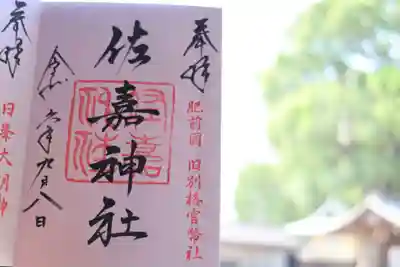 奉拝
肥前國 旧別格官幣社
佐嘉神社
令和六年九月八日
奉拝
日峯大明神